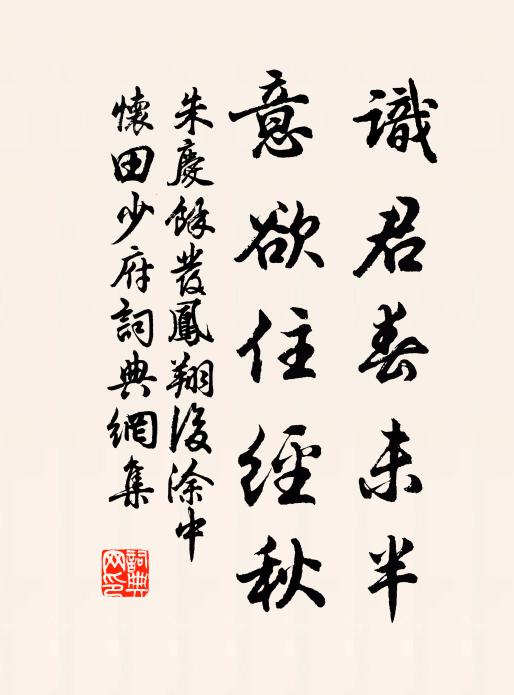 識君春未半
意欲住經秋
朱慶餘發鳳翔後涂中
懷田少府詞典網集
詞典網印